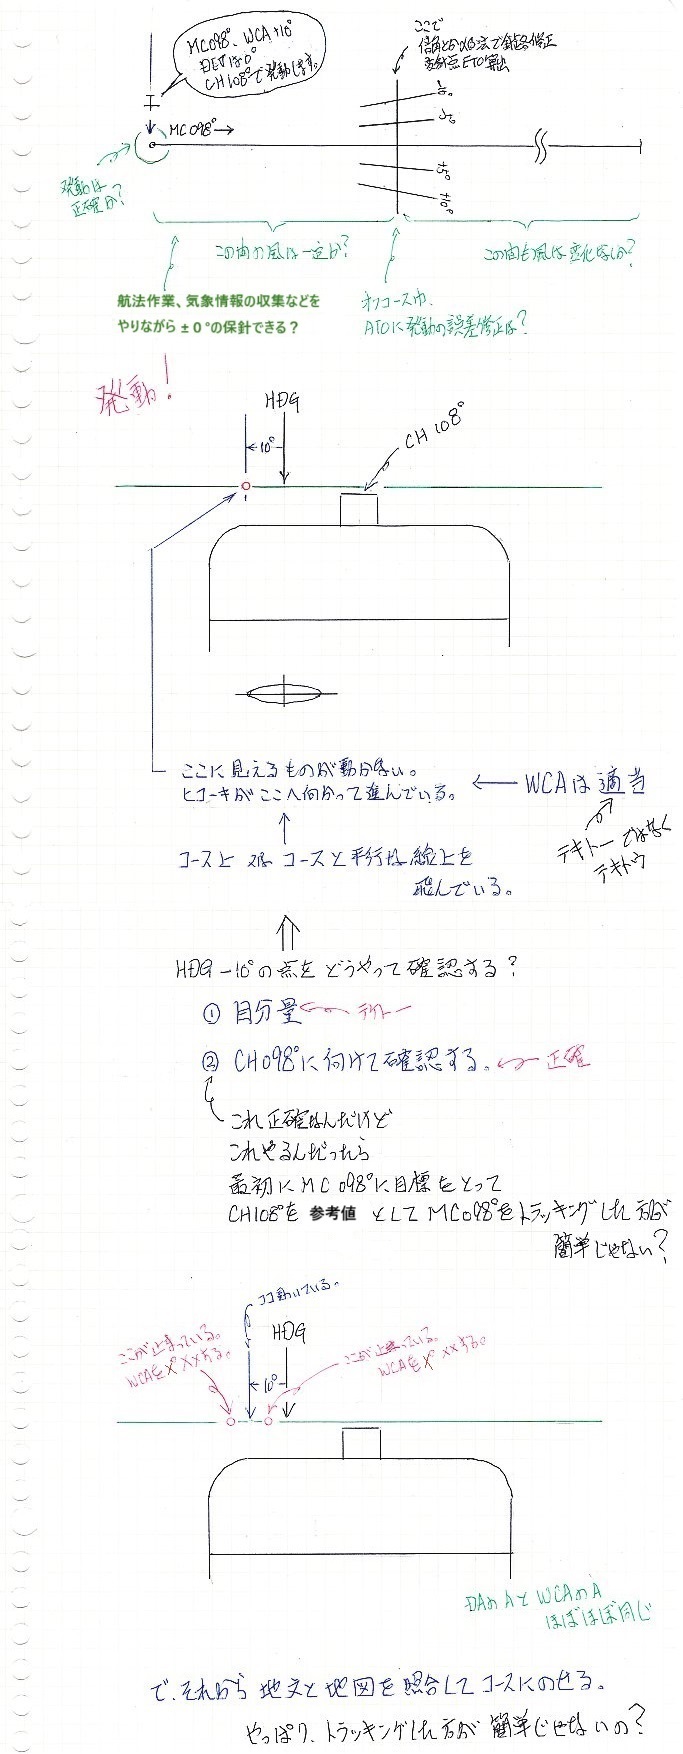 MC098°、WCA+10°
DEVは0°
CH108°で発動します。
ここで
倍角とか 法で針路修正
変針点ETO算出
MC098°→
-10°
-5°
+5°
+10°
発動は
正確か?
この間の風は一定か?
この間も風は変化なしか?
航法作業、気象情報の収集などを
やりながら±0°の保針できる?
オンコース?
ATOに発動の誤差修正は?
発動!
HDG
10°
CH108°
ここに見えるものが動かない。
ヒコーキがここへ向かって進んでいる。
WCAは適当
テキトーではなく
テキトウ
コース上 又は コースと平行な線上を
飛んでいる。
HDG-10°の点を どうやって確認する?
① 目分量
テキトー
② CH098°に向けて確認する。
正確
これ正確なんだけど
これやるんだったら
最初にMC 098°に目標をとって
CH108°を 参考値 として MC098°をトラッキングした方が
簡単じゃない?
ココ動いている。
ここが止まっている。
WCAをX°XXする。
HDG
ここが止まっている。
WCAをX°XXする。
10°
DAのAとWCAのA
ほぼほぼ同じ
で、それから 地文と地図を照合してコースにのせる。
やっぱり、トラッキングした方が 簡単じゃないの?